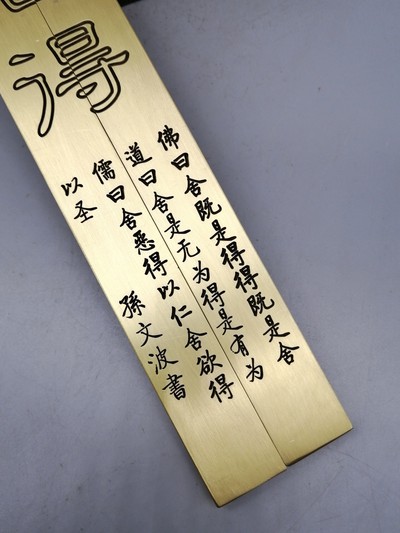 得
佛曰舍既是得得既是舍
道曰舍是无为得是有为
儒曰舍恶得以仁舍欲得
以圣 孫文波書